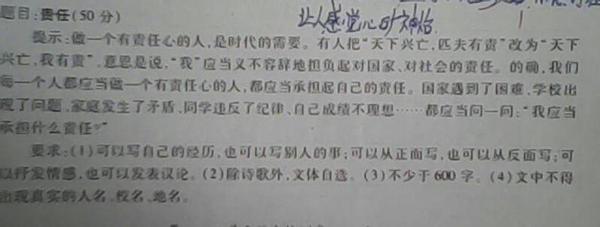 让人感觉心旷神怡
题目:责任(50分)
提示:做一个有责任心的人,是时代的需要。有人把“天下兴亡,匹夫有责”改为“天下
兴亡,我有责”,意思是说,“我”应当义不容辞地担负起对国家、对社会的责任。的确,我们
每一个人都应当做一个有责任心的人,都应当承担起自己的责任。国家遇到了困难,学校出
现了问题,家庭发生了矛盾,同学违反了纪律、自己成绩不理想……都应当问一问:“我应当
承担什么责任?”
要求:(1)可以写自己的经历,也可以写别人的事;可以从正面写,也可以从反面写;可
以抒发情感,也可以发表议论。(2)除诗歌外,文体自选。(3)不少于600字。(4)文中不得
出现真实的人名、校名、地名。